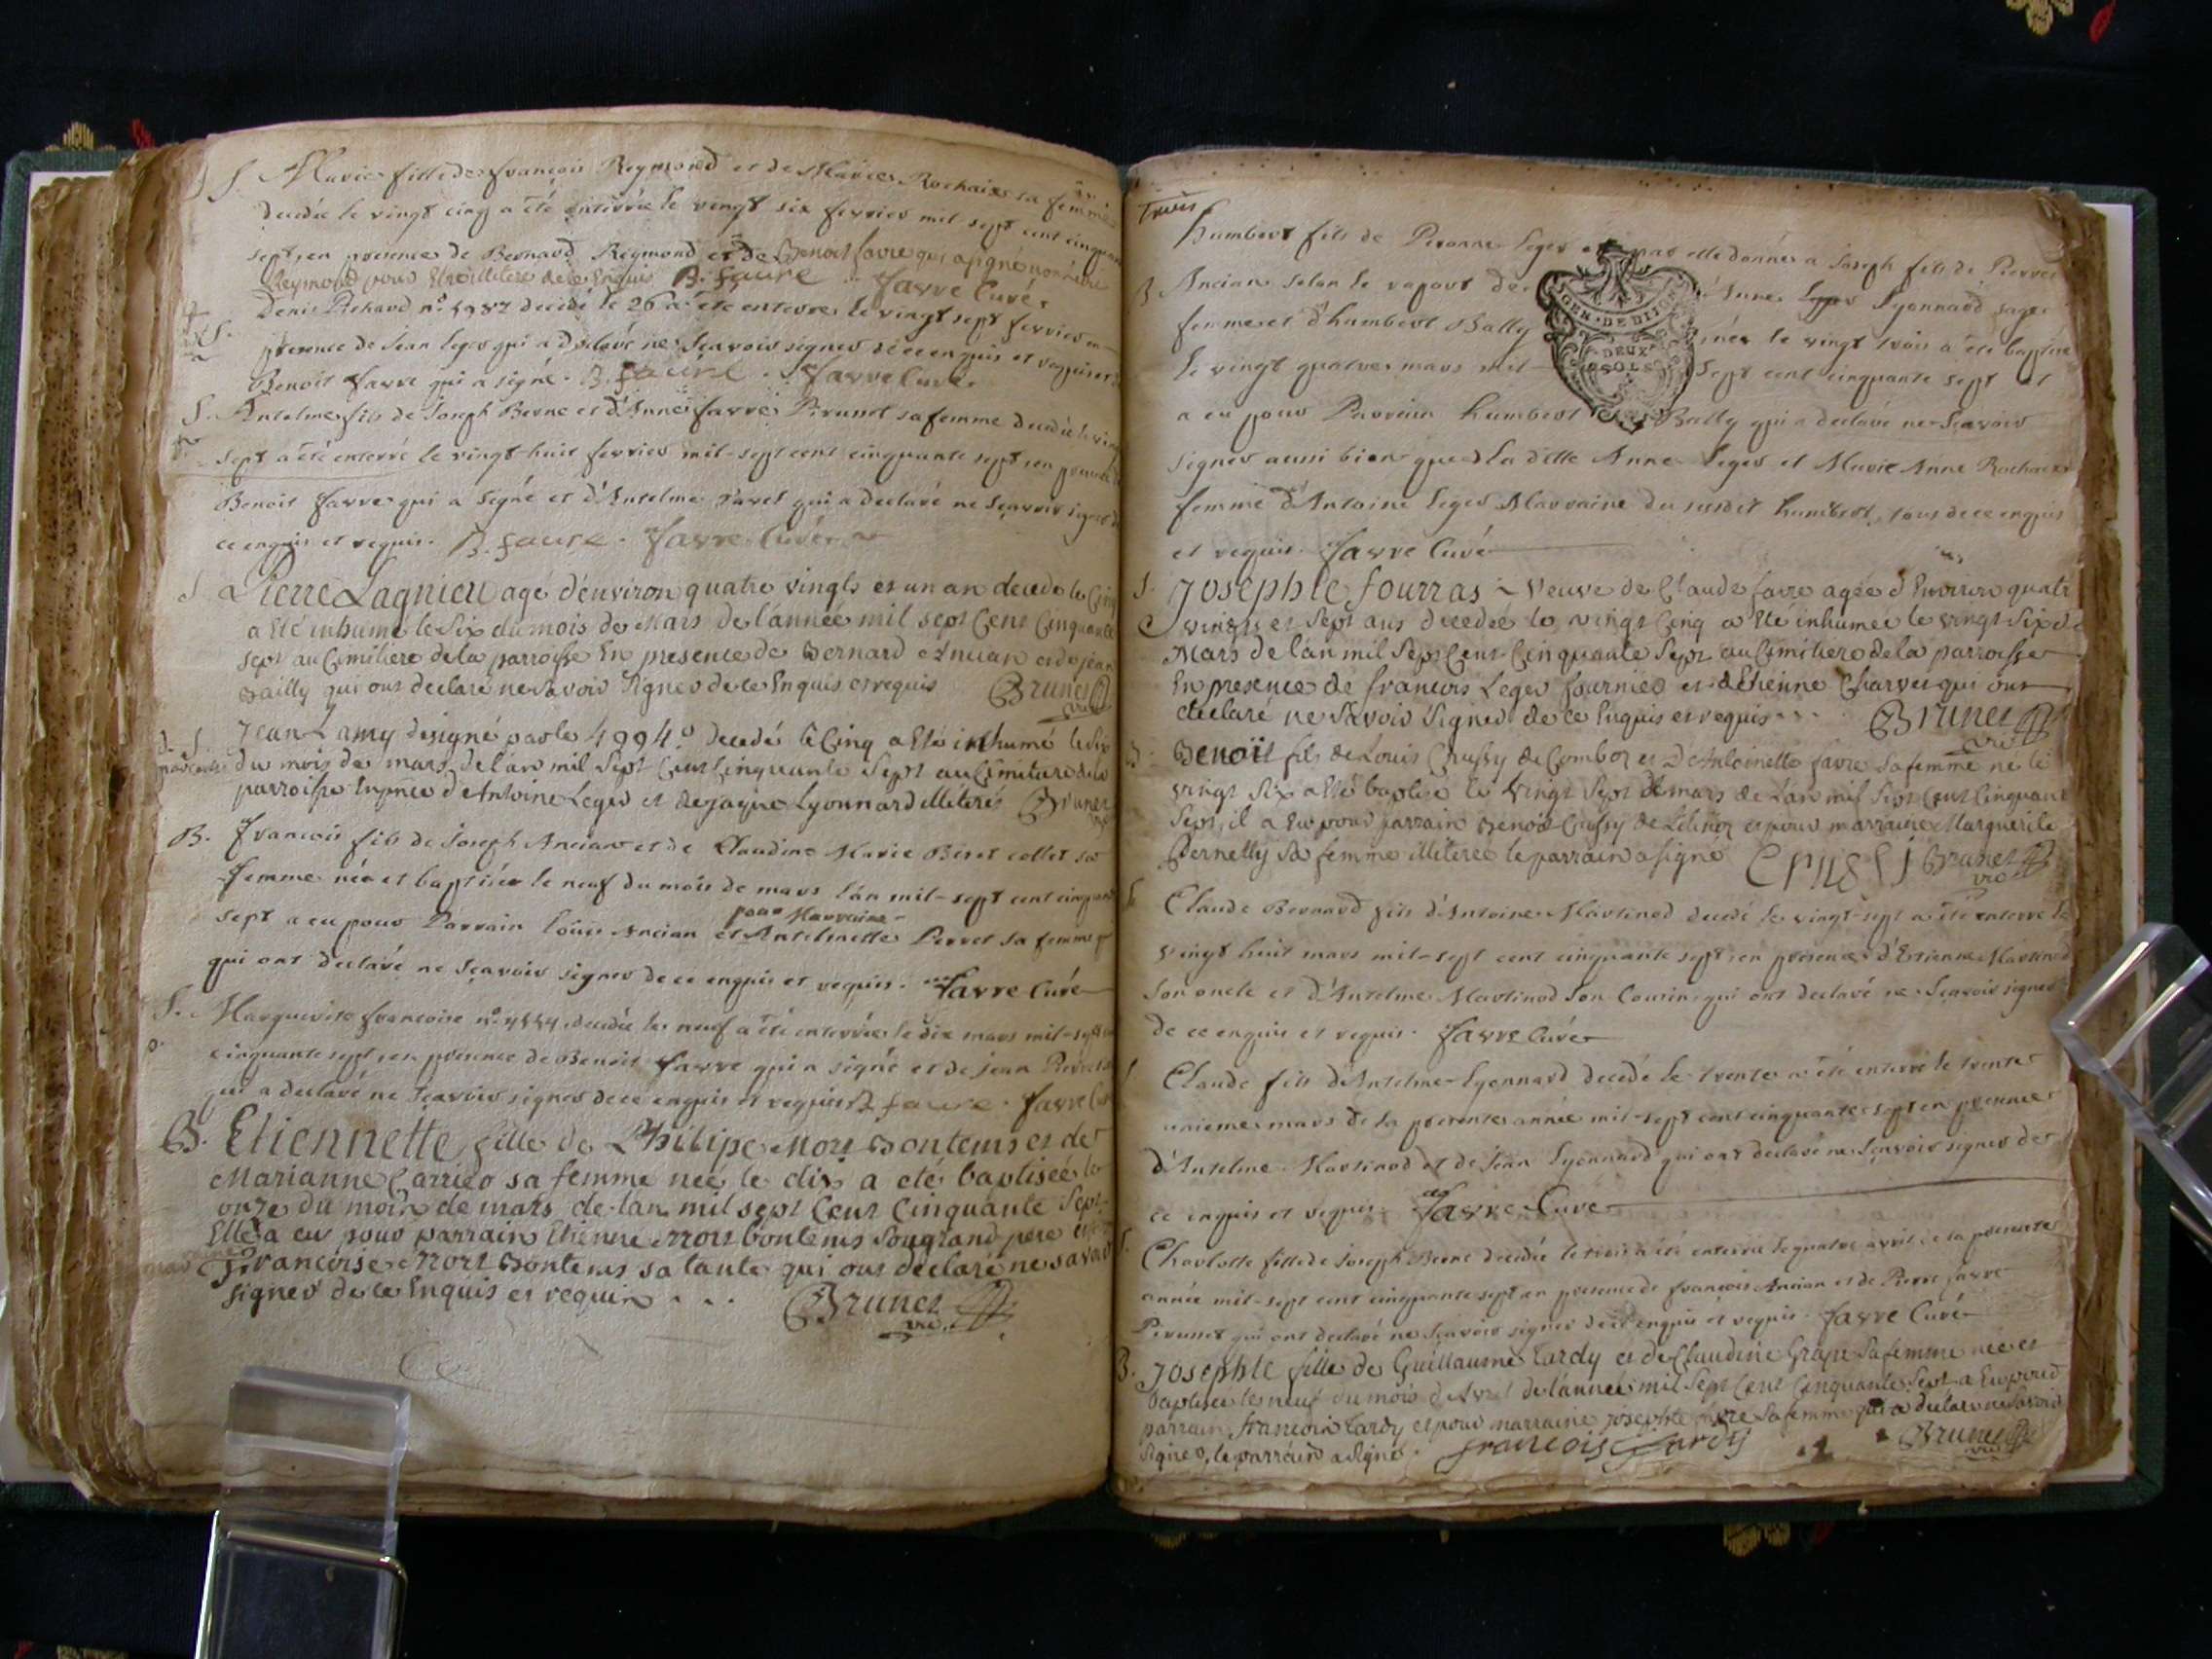 S. Marie fille de françois Reymond et de Marie Rochaix sa femme
decedée le vingt cinq a été enterrée le vingt six fevrier mil sept cent cinquante
sept, en presence de Bernard Reymond et de Benoit favre qui a signé non ledit
Reymond pour Etre illitere de ce Enquis B. faure favre Curé
S. Denis Richard n.º 4987 decedé le 26 a été enterré le vingt sept fevrier en
presence de Jean Leger qui a declaré ne sçavoir signer de ce enquis et requis et de
Benoit favre qui a signé. B. faure. favre Curé
S. Antelme fils de Joseph Berne et d'Anne favre Brunet sa femme decedé le vingt
sept a été enterré le vingt-huit fevrier mil-sept cent cinquante sept, en presence de
Benoit favre qui a signé et d'Antelme qui a declaré ne sçavoir signer de
ce enquis et requis. B. faure. favre Curé
S. Pierre Lagnieu agé d'environ quatre vingts et un an decedé le Cinq
a Eté inhumé le Six du mois de Mars de l'année mil sept Cent Cinquante
sept au Cimitiere de la parroisse En presence de Bernard Ancian et de jean
Bailly qui ont declaré ne savoir Signer de ce Enquis et requis Brunet
vic
S. Jean Lamy designé par le 4994.º decedé le Cinq a Eté inhumé le Six
du mois de mars de l'an mil Sept Cent Cinquante Sept au Cimitiere de la
parroisse En pnce d'Antoine Leger et de jaque Lyonnard illiterés Brunet
vic
B. François fils de Joseph Ancian et de Claudine Marie Biret collet sa
femme né et baptisé le neuf du mois de mars l'an mil-sept cent cinquante
pour Marraine
sept a eu pour Parrain Louis Ancian et Anthelmette Perret sa femme
qui ont declaré ne sçavoir signer de ce enquis et requis. favre Curé
S. Marguerite françoise n.º decedée le neuf a été enterrée le dix mars mil-sept cent
cinquante sept, en presence de Benoit favre qui a signé et de jean
qui a declaré ne sçavoir signer de ce enquis et requis B faure. favre Curé
B. Etiennette fille de Philipe Mort Bontems et de
Marianne Carrier sa femme née le dix a eté baptisée le
onze du mois de mars de l'an mil sept Cent Cinquante Sept
Elle a eu pour parrain Etienne Mort bontems Son grand pere et
marraine Françoise Mort Bontems sa tante qui ont declaré ne savoir
signer de ce Enquis et requis . . . Brunet
vic
Trois
humbert fils de Peronne Leger et par elle donné a Joseph fils de Pierre
B Ancian selon le raport de Anne Leger Lyonnard sage
GEN. DE DIJON
DEUX
SOLS
femme et d'humbert Bally né le vingt trois a été baptisé
le vingt quatre mars mil sept cent cinquante sept et
a eu pour Parrain humbert Bally qui a declaré ne sçavoir
signer aussi bien que la ditte Anne Leger et Marie Anne Rochaix
femme d'Antoine Leger Marraine du susdit humbert, tous de ce enquis
et requis. favre Curé
S. Josephte fourras veuve de Claude favre agée d'Environ quatre
vingts et Sept ans decedée le vingt Cinq a Eté inhumée le vingt-Six de
Mars de l'an mil Sept Cent Cinquante Sept au Cimitiere de la parroisse
En presence de françois Leger fournier et d'Etienne Charvet qui ont
declaré ne savoir Signer de ce Enquis et requis . . . Brunet
vic
B Benoit fils de Louis Crussy de et d'Antoinette favre Sa femme né le
vingt Six a Eté baptisé le vingt Sept de mars de l'an mil Sept Cent Cinquante
Sept, il a Eu pour parrain Benoit Crussy de et pour marraine Marguerite
Pernetty Sa femme illiterée le parrain a signé Crussy Brunet
vic
S Claude Bernard fils d'Antoine Martinod decedé le vingt-sept a été enterré le
vingt huit mars mil-sept cent cinquante sept, en presence d'Etienne Martinod
son oncle et d'Antelme Martinod son Cousin, qui ont declaré ne sçavoir signer
de ce enquis et requis. favre Curé
Claude fils d'Antelme Lyonnard decedé le trente a été enterré le trente
unieme mars de la presente année mil-sept cent cinquante sept en presence
d'Antelme Martinod et de Jean Lyonnard qui ont declaré ne sçavoir signer de
ce enquis et requis. favre Curé
S. Charlotte fille de Joseph Berne decedée le trois a été enterrée le quatre avril de la presente
année mil-sept cent cinquante sept en presence de françois Ancian et de Pierre favre
qui ont declaré ne sçavoir signer de ce enquis et requis. favre Curé
B. Josephte fille de Guillaume Tardy et de Claudine Sa femme née et
baptisée le neuf du mois d'Avril de l'année mil Sept Cent Cinquante Sept a Eu pour
parrain françois Tardy et pour marraine josephte Sa femme qui a declaré ne Savoir
Signer, le parrain a Signé. francois Tardy Brunet
vic